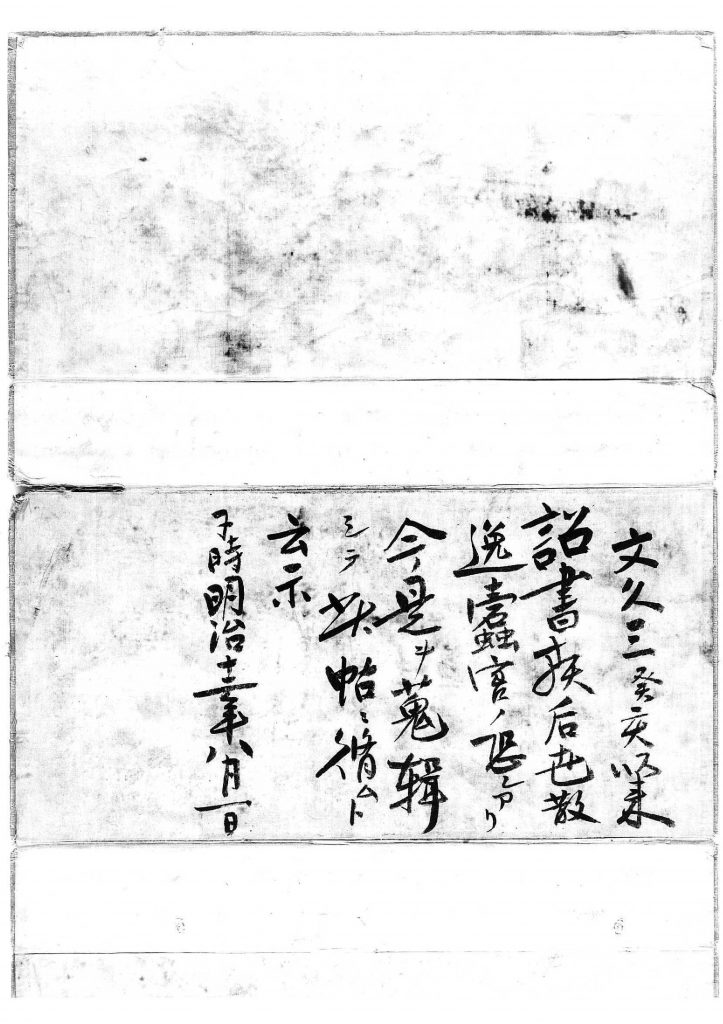 文久三癸亥以来
詔書類后世散
逸蠹蝕害ノ恐アリ
今是ヲ蒐輯
シテ帖ニ脩ムト
云尓
于時明治十三年八月一日